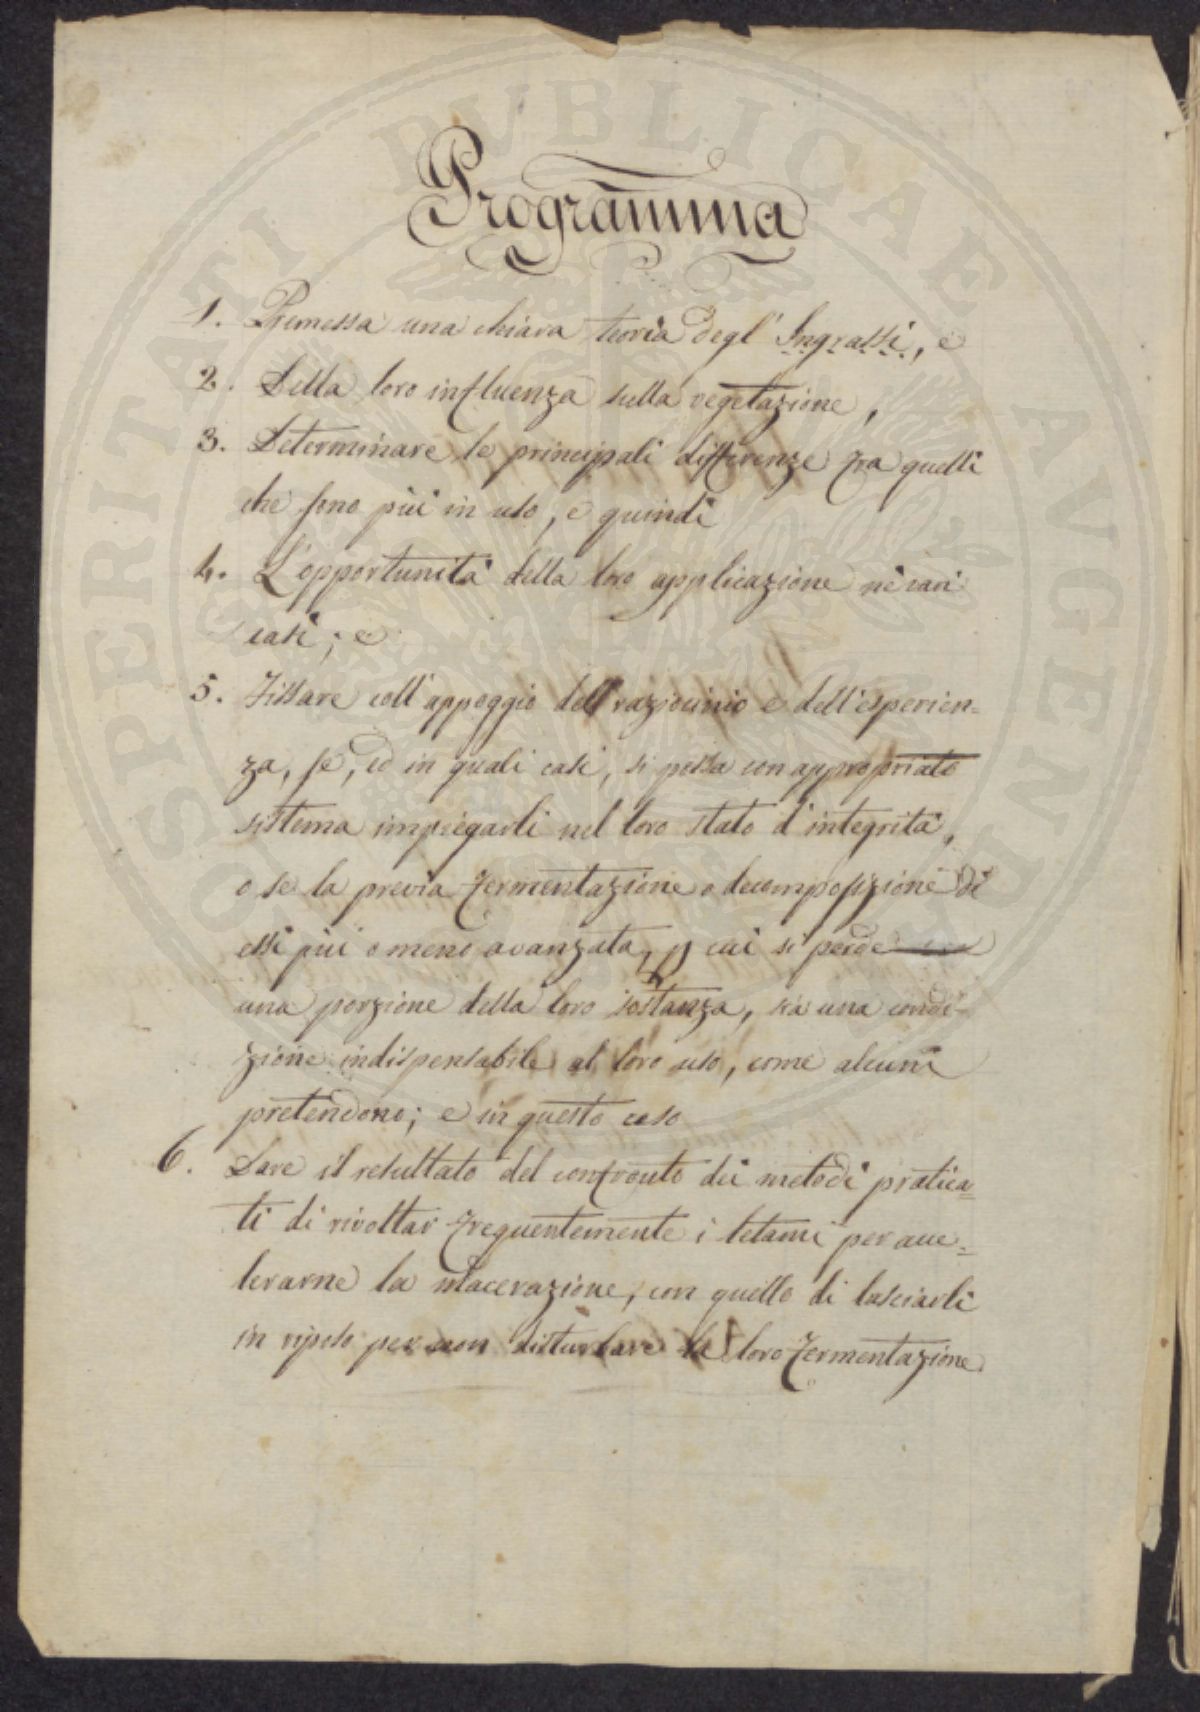 Programma
1. Premessa una chiara teoria degl' Ingrassi, e
2. Della loro influenza sulla vegetazione,
3. Determinare le principali differenze fra quelli
che sono più in uso, e quindi
4. L'opportunità della loro applicazione ne' varî
casi; e
5. Fissare coll'appoggio del raziocinio e dell'esperien-
za, se, ed in quali casi, si possa con appropriato
sistema impiegarli nel loro stato d'integrità,
o se la previa fermentazione o decomposizione di
essi più o meno avanzata, p cui si perde
una porzione della loro sostanza, sia una condi-
zione indispensabile al loro uso, come alcuni
pretendono; e in questo caso
6. Dare il resultato del confronto dei metodi pratica=
ti di rivoltar frequentemente i letami per acce=
lerarne la macerazione, con quello di lasciarli
in riposo per non disturbare la loro fermentazione
PROSPERITATI PVBLICAE AVGENDAE